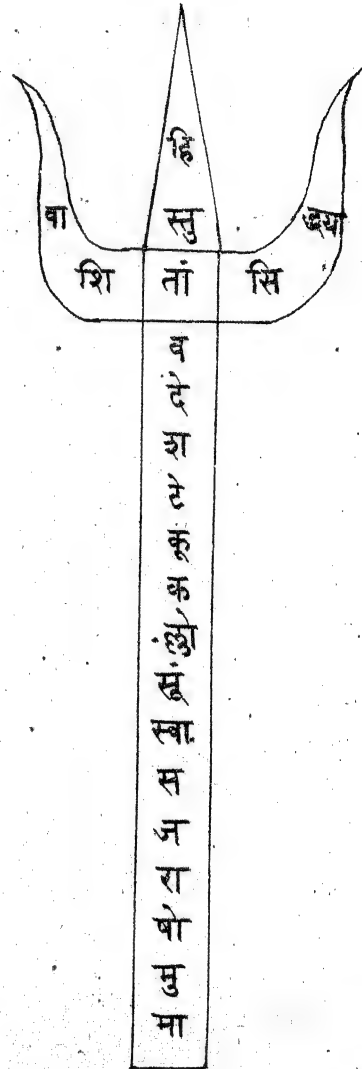 हि
वा सु द्धया
शि तां सि
व
दे
श
टे
कू
क
सूं
स्वा
स
ज
रा
षो
मु
मा